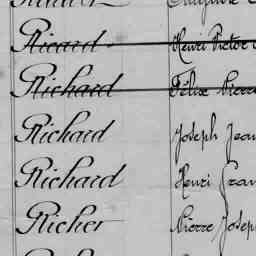 Ricard Henri Victor
Richard Félix Pierre
Richard Joseph Jean
Richard Henri Fran
Richer Pierre Joseph